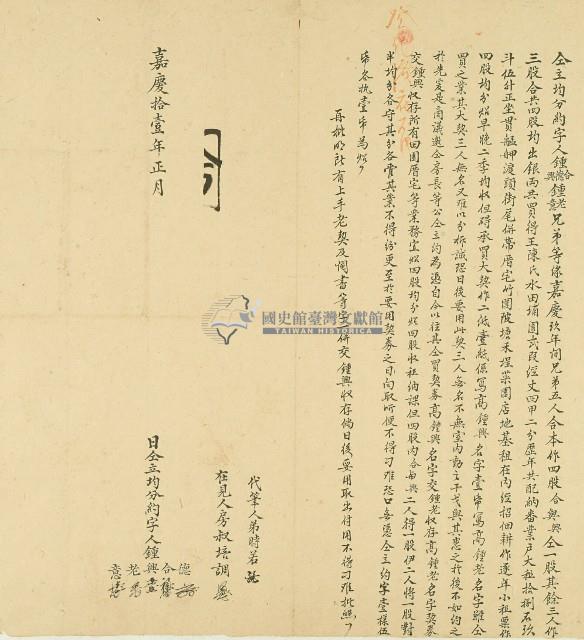 仝立均分約字人鍾合德興鍾老意兄弟等緣嘉慶玖年間兄弟五人合本作四股合與興仝一股其餘三人作
三股合共四股均出銀両共四買得王陳氏水田埔園弍段經丈四甲二分歷年共配納番業戶大租拾捌石玖
斗伍升正坐貫艋舺渡頭街尾併帶厝宅竹圍陂塘禾埕菜園店地基租在內經招佃耕作逐年小租票仍
四股均分照早晚二季均收但碍承買大契作二紙壹紙係寫高鍾興名字壹帋寫高鍾老名字雖仝
買之業其大契三人無名又难以分拆誠恐日後要用此契三人無名不無室內動之干戈與其悉之於後不如約之
於先爰是商議邀仝房長等公仝立約為憑自今以往其仝買契券高鍾興名字交鍾老收存高鍾老名字契券
交鍾興收存所有田園厝宅等業務宜照四股均分照四股收租納課但四股內各與興二人得一股伊二人將一股對
半均分各守其分各管其業不得紛更至於要用契券之日向取所便不得刁难恐口無憑仝立約字壹樣伍
帋各执壹帋為照
再批明所有上手老契及鬮書等字一併交鍾興收存倘日後要用取出付用不得刁难批照
代筆人弟時若
在見人房叔培調
嘉慶拾壹年正月
日仝立均分約字人鍾
德
合
興
老
意
國史館臺灣文獻館
TAIWAN HISTORICA